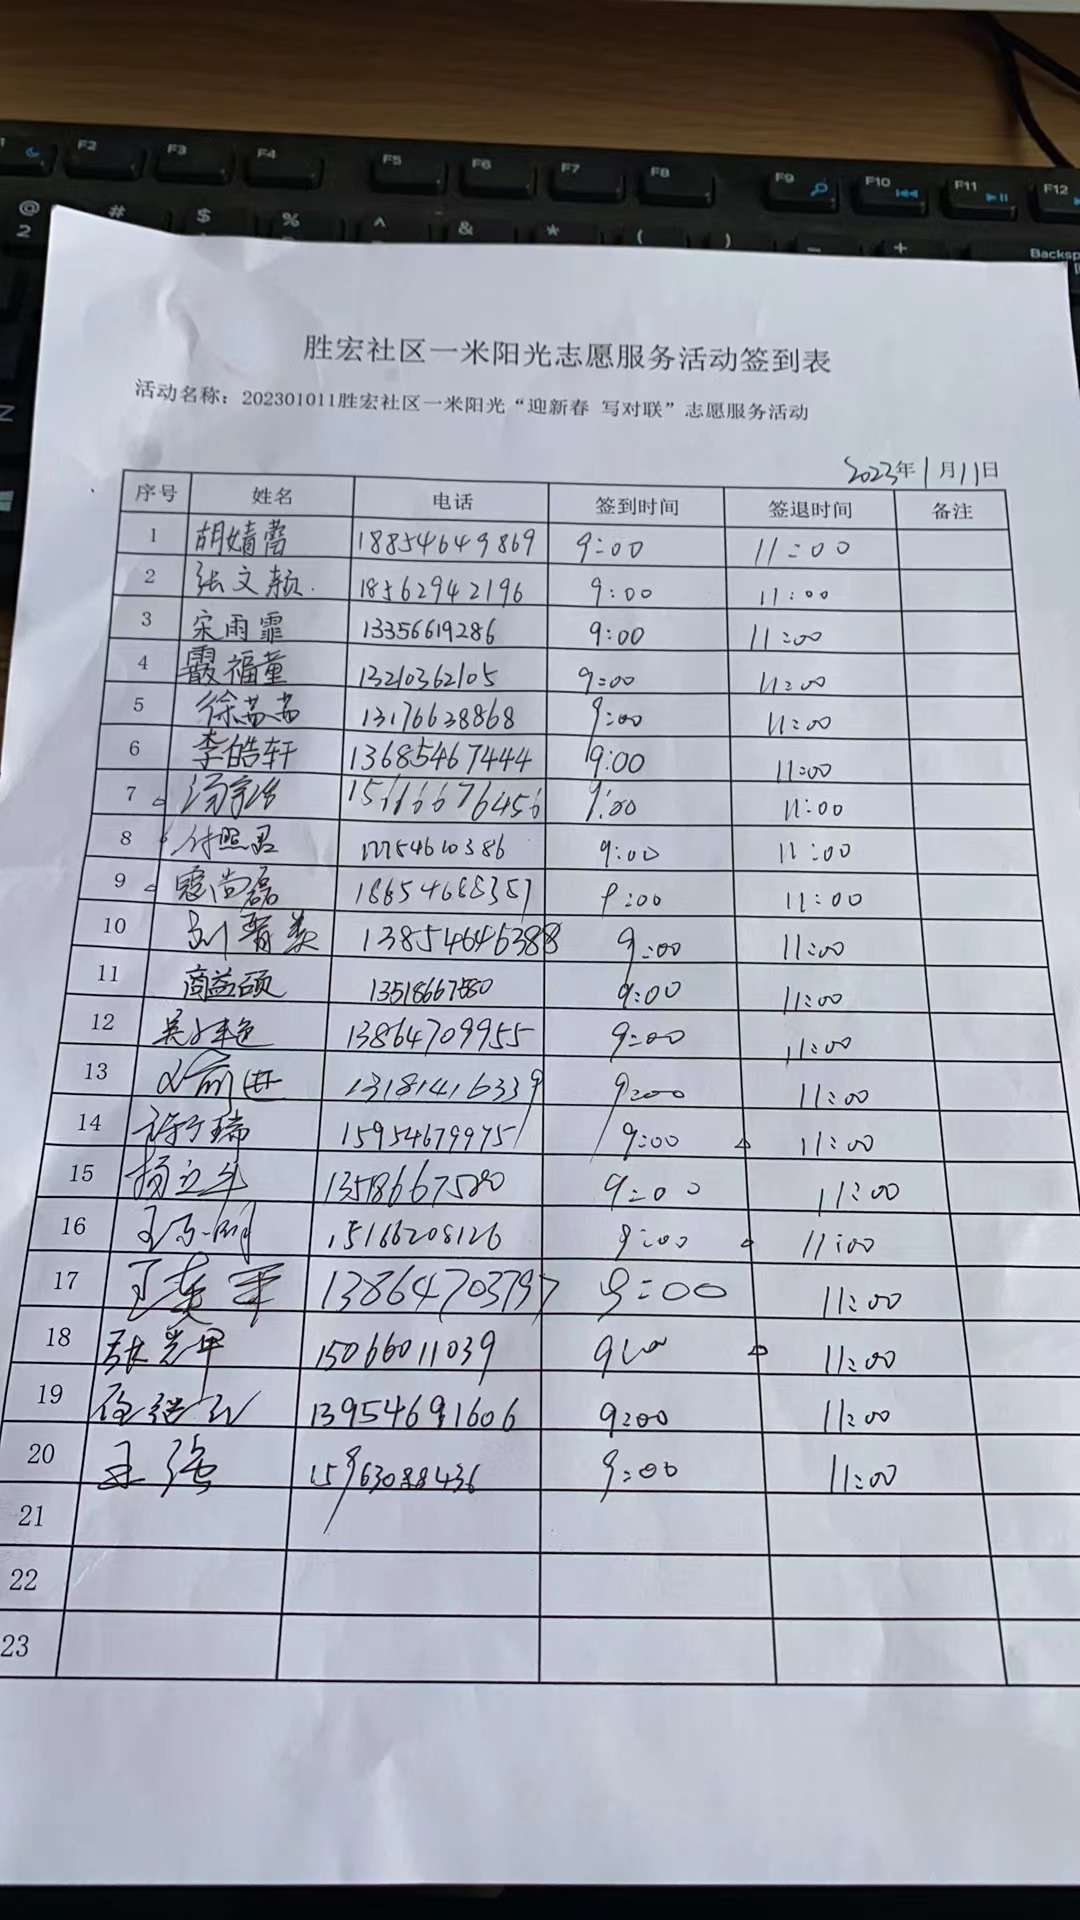 F2 F3 F4 F5 F6 F7 F8 F9 F10 F11 F12
@ # $ % ^ & * ( ) _ +
2 Backsp
胜宏社区一米阳光志愿服务活动签到表
活动名称：202301011胜宏社区一米阳光“迎新春 写对联”志愿服务活动
2023年1月11日
序号 姓名 电话 签到时间 签退时间 备注
1 胡婧蕾 18854649869 9:00 11:00
2 张文颖 18562942196 9:00 11:00
3 宋雨霏 13356619286 9:00 11:00
4 霞福童 13210362105 9:00 11:00
5 徐茜茜 13176638868 9:00 11:00
6 李皓轩 13685467444 9:00 11:00
7 9:00 11:00
8 付照君 9:00 11:00
9 寇尚磊 18654688357 9:00 11:00
10 13854646388 9:00 11:00
11 商益硕 13518667580 9:00 11:00
12 13864709955 9:00 11:00
13 13181416339 9:00 11:00
14 15954679975 9:00 11:00
15 杨立军 13518667580 9:00 11:00
16 15166208126 9:00 11:00
17 王英军 13864703797 9:00 11:00
18 张光甲 15066011039 9:00 11:00
19 13954691606 9:00 11:00
20 王强 15963088436 9:00 11:00
21
22
23